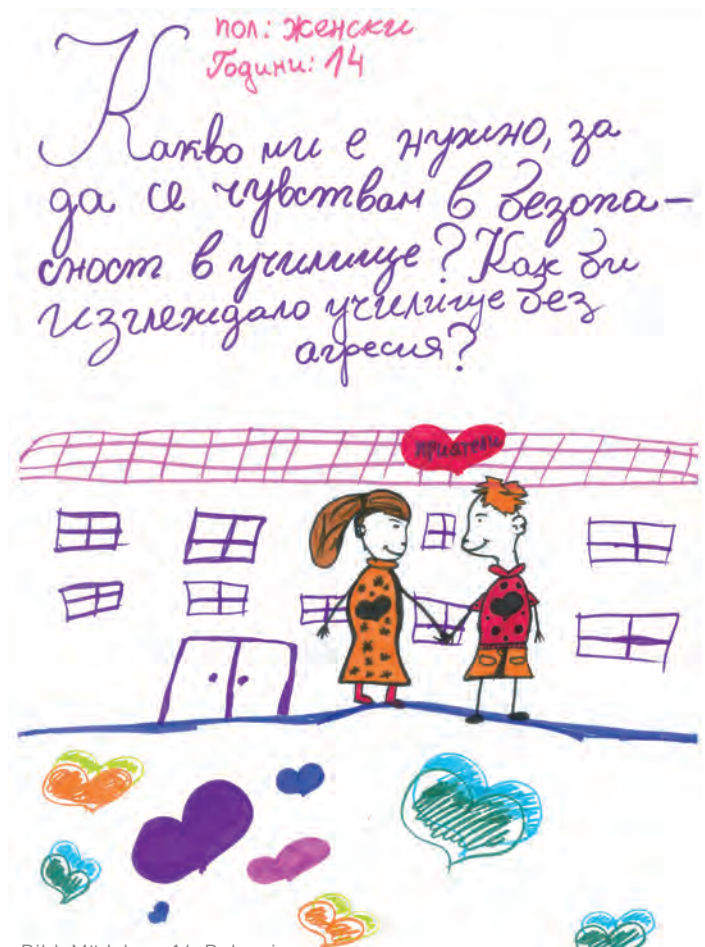 пол: женски
Години: 14
Какво ми е нужно, за
да се чувствам в безопа-
сност в училище? Как би
изглеждало училище без
агресия?
приятели